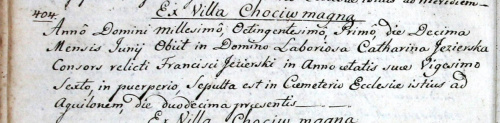 Ex Villa Chociw magna
404. Annô Domini millesimô, Octingentesimô, Primô, die Decima
Mensis Junij Obiit in Domino Laboriosa Catharina Jezierska
Consors relicti Francisci Jezierski in Anno ætatis suæ Vigesimo
Sexto, in puerperio, Sepulta est in Cæmeterio Ecclesiæ istius ad
Aquilonem, die duodecima præsentis
Ex Villa Chociw magna